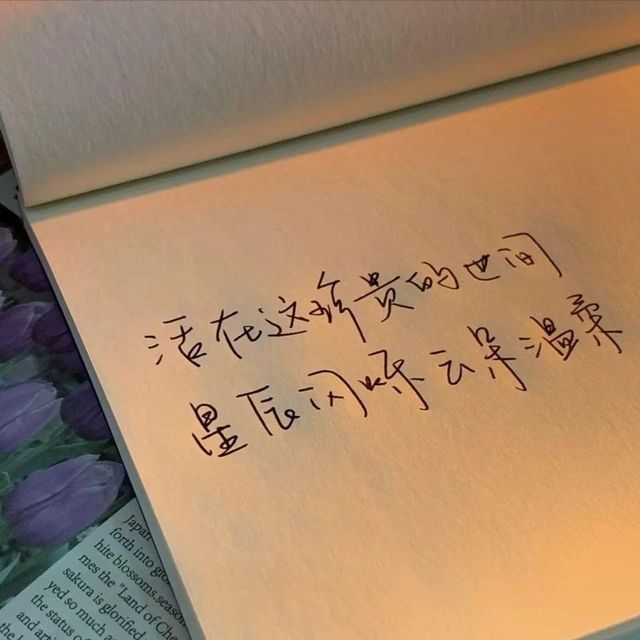 活在这珍贵的世间
星辰闪烁云朵温柔
Japan
forth into glo
hite blossoms.season
mes the "Land of Che
sakura is glorified
yed so much a
the status o
and arti